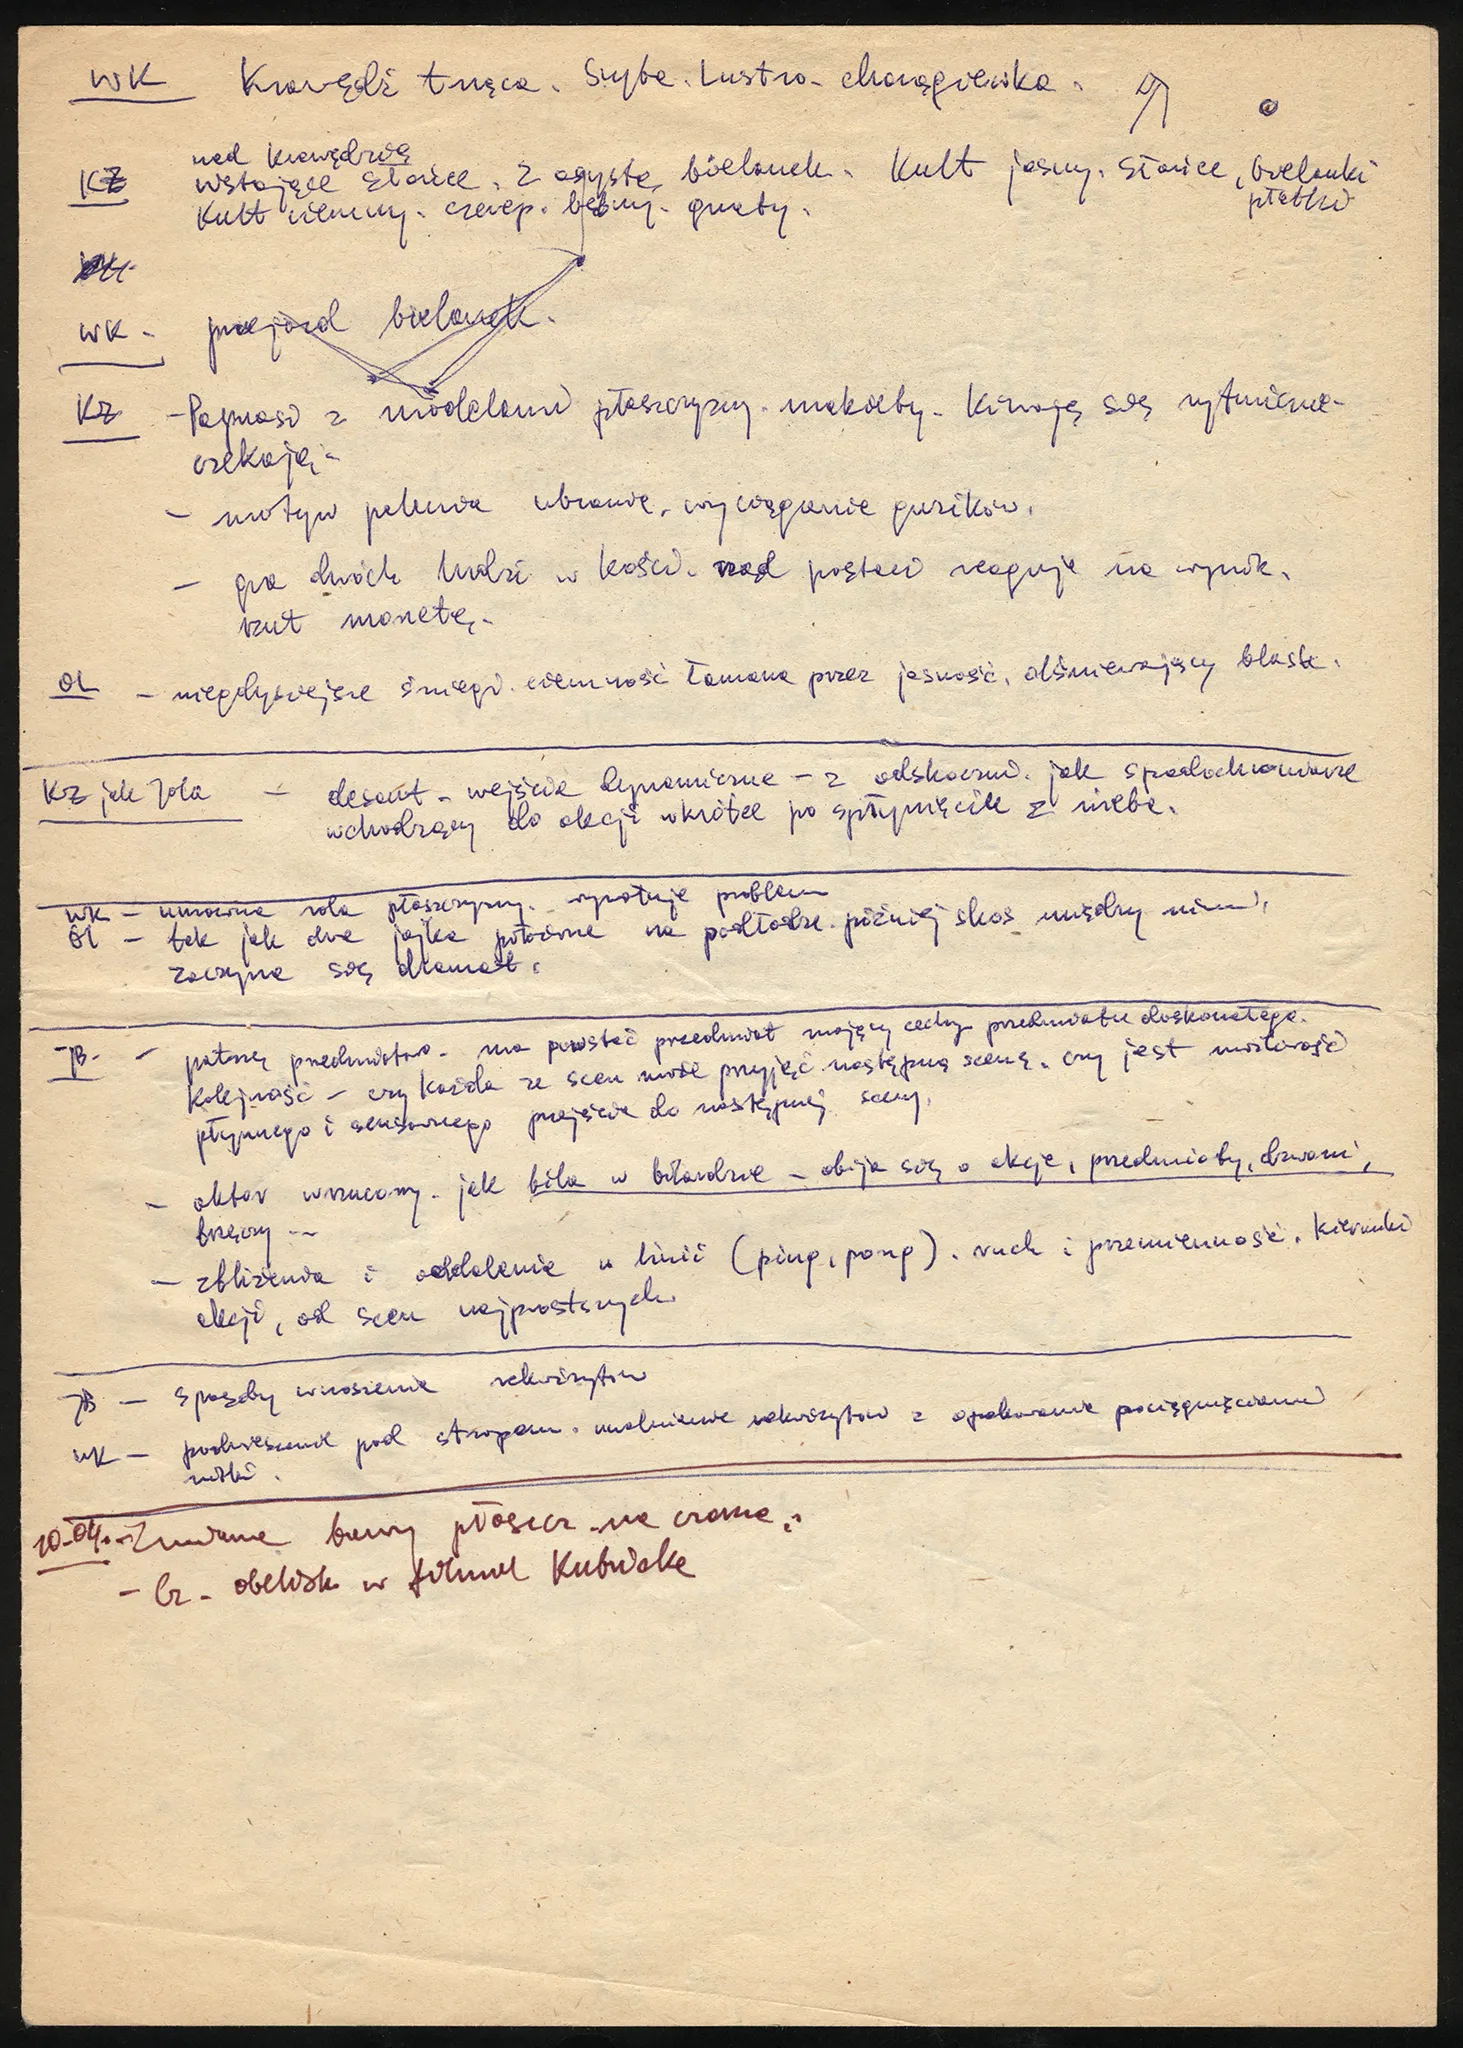 WK Krawędź tnąca. Szyba. Lustro. chorągiewka.
nad krawędzią
KZ wstające słońce. Z asystą bielanek. Kult jasny. Słońce, bielanki
płatki
Kult ciemny. czerep. bębny. gnaty.
WK - przejazd bielanek.
KZ - Pajmasi z modelami płaszczyzny. makiety. Kiwają się rytmicznie-
czekają -
- motyw palenia ubranie, wyciąganie guzików.
- gra dwóch ludzi w kości. rząd postaci reaguje na wynik.
rzut monetą.
OL - niegdysiejsze śniegi. ciemność łamana przez jasność, olśniewający blask.
KZ jak Zola - desant - wejście dynamiczne - z odskoczni. jak spadochroniarze
wchodzący do akcji wkrótce po spłynięciu z nieba.
WK - umowna rola płaszczyzny. rysuje problem
OL - tak jak dwa jajka położone na podłodze. później skos między nimi,
zaczyna się dramat.
JB - - patrzę przedmiotowo. ma powstać przedmiot mający cechy przedmiotu doskonałego.
Kolejność - czy każda ze scen może przyjąć następną scenę. czy jest możliwość
płynnego i sensownego przejścia do następnej sceny.
- aktor wrzucony. jak bila w bilardzie - obija się o akcje, przedmioty, dzwoni,
brzęczy --
- zbliżenia i oddalenie w linii (ping, pong). ruch i przemienność. Kierunki
akcji, od scen najprostszych
JB - sposoby wnoszenia rekwizytów
WK - podwieszenie pod stropem. uwolnienie rekwizytów z opakowania pociągnięciami
nitki.
10-04. - Zmiana barwy płaszcz. na czarną.
- Cz. obelisk w filmie Kubricka